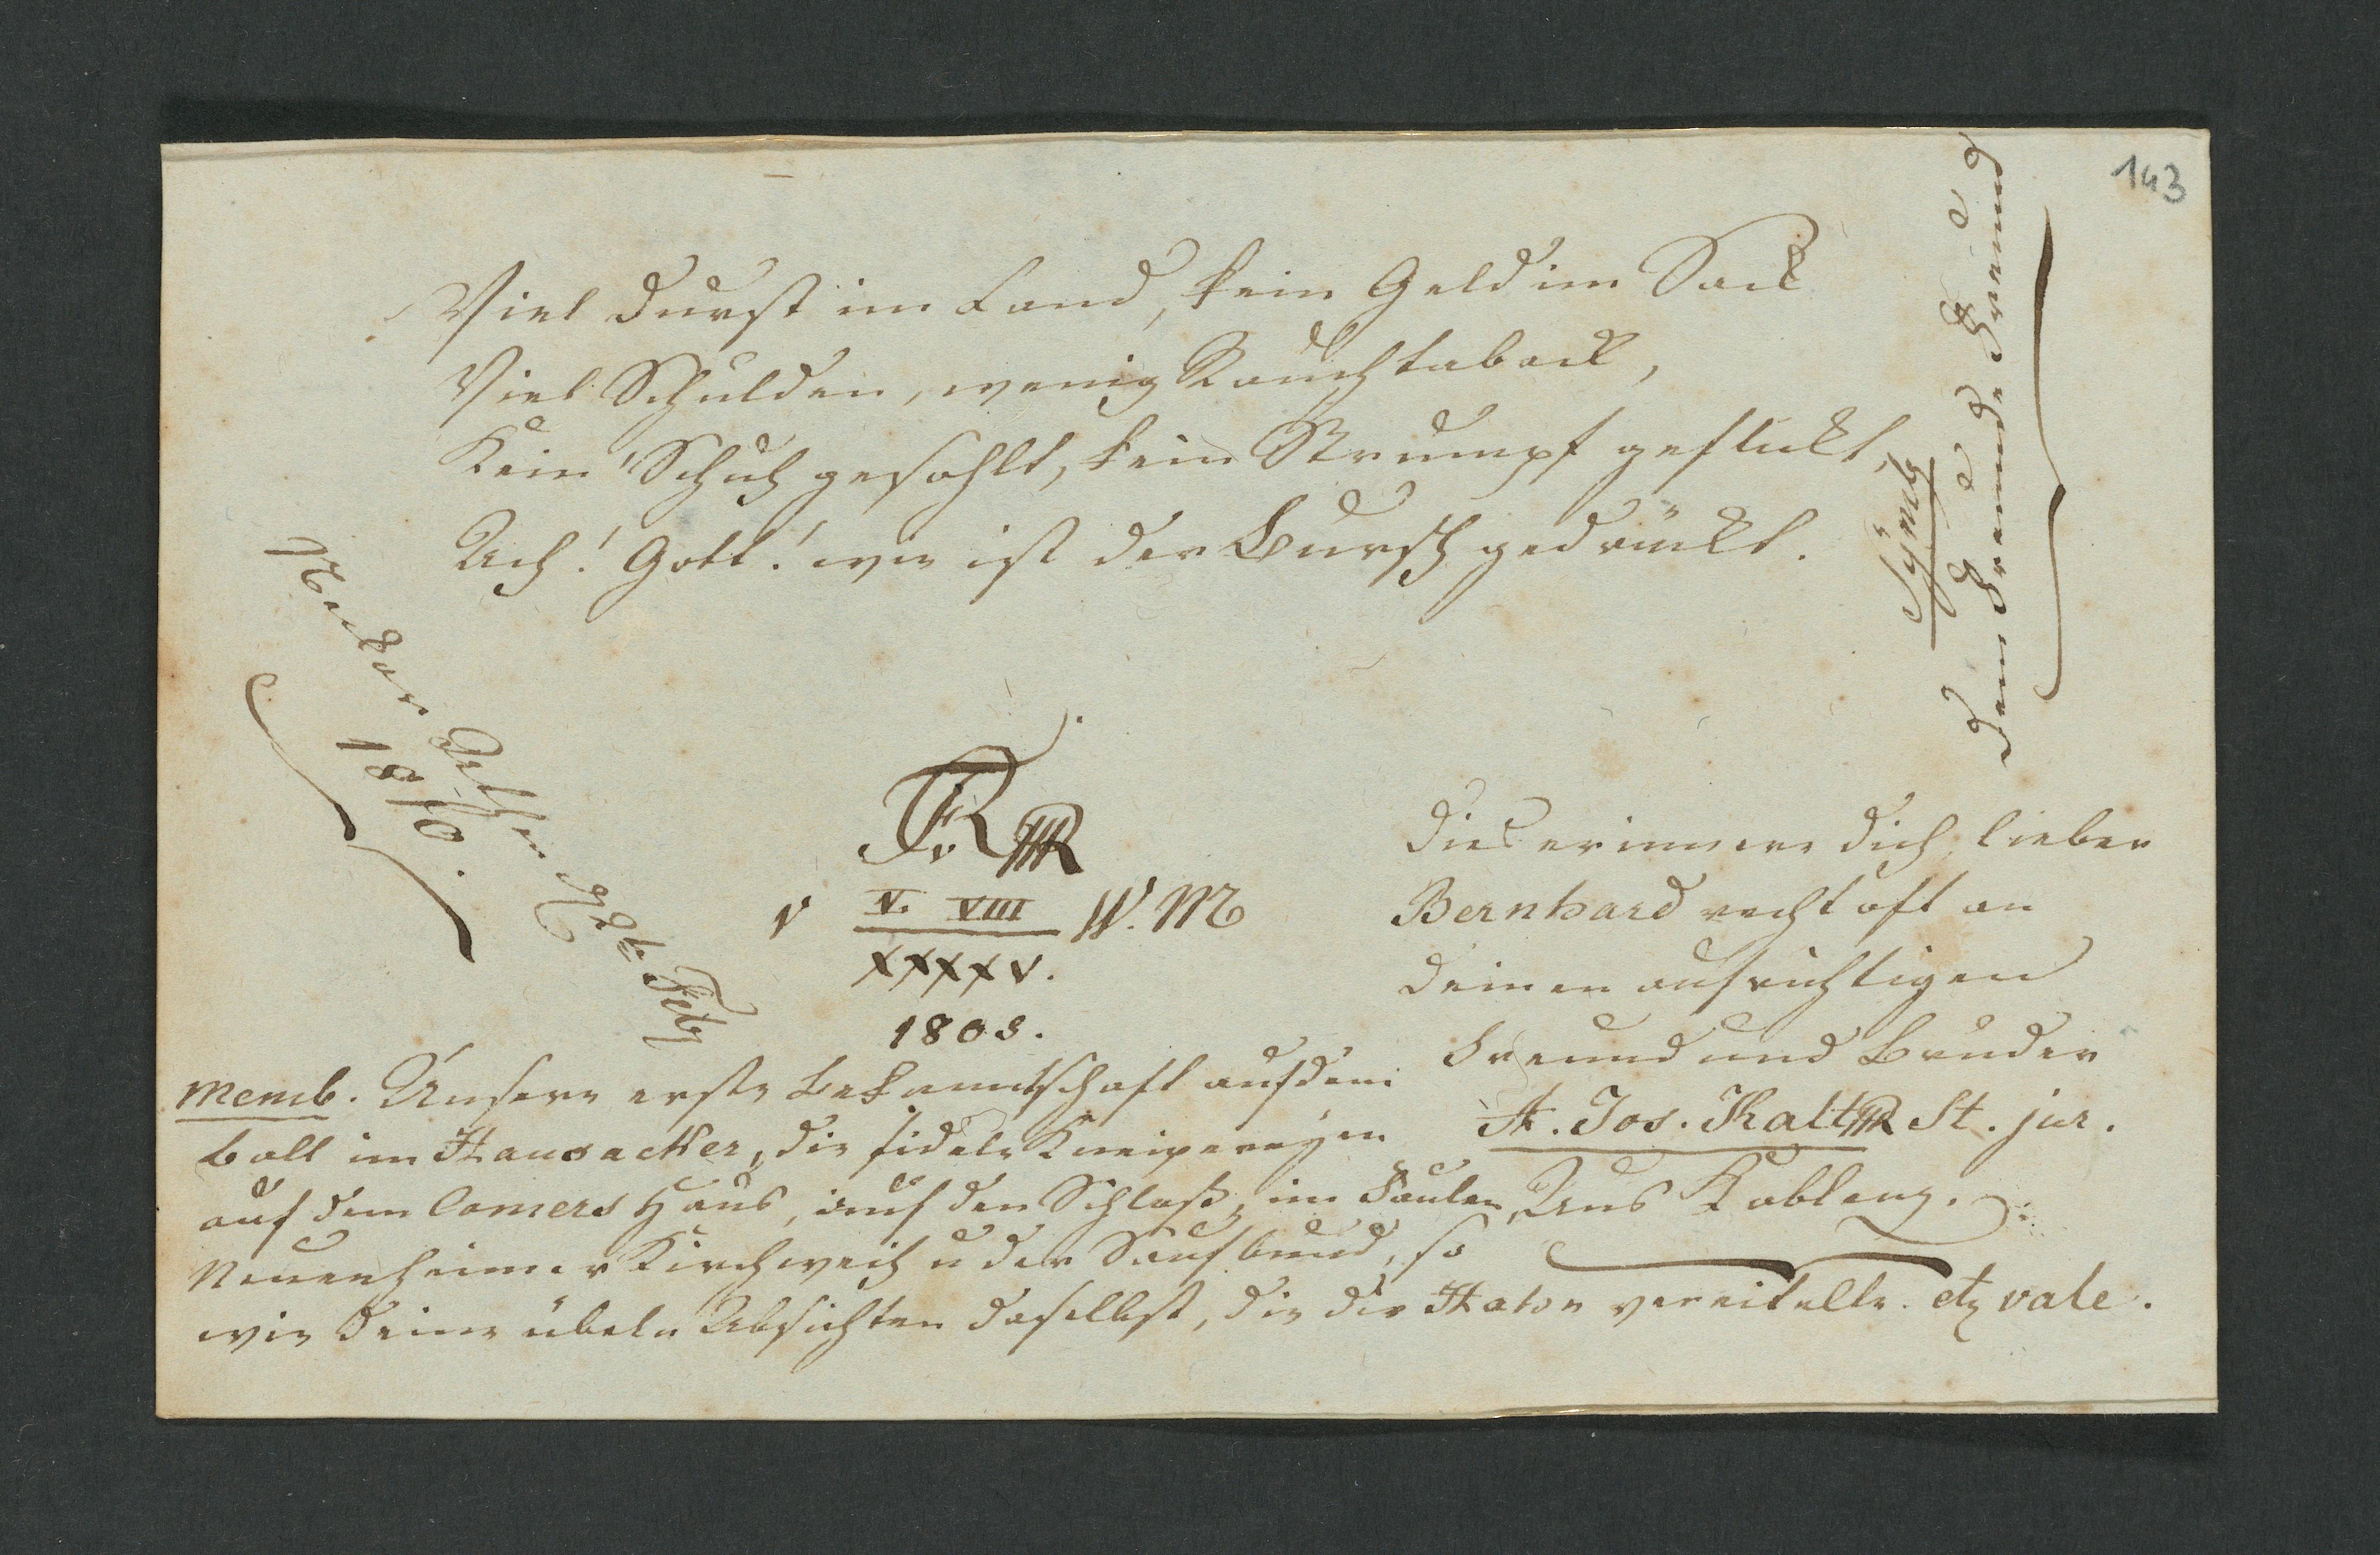 143
Viel Durst im Land, kein Geld im Sack
Viel Schulden, wenig Rauchtaback,
Kein' Schuh gesohlt, kein Strumpf geflickt,
Ach! Gott! wie ist der Bursch gedrückt.
Symb
Dem Freunde Freund
Neckar Athen
Feb
1810.
V. VIII
v W. M
XXXXV.
1808.
Dies erinnere dich, lieber
Bernhard recht oft an
deinen aufrichtigen
Freund und Bruder
A. Jos. Kalt St. jur.
Aus Koblenz.
Memb. Unsere erste Bekanntschaft auf dem
Ball im Hausacker, die fidele Kneipereyen
auf dem Comers Haus, auf dem Schloß, im Faulen,
Neuenheimer Kirchweih u der Saufbund, so
wie deine übeln Absichten daselbst, die der Hator vereitelte. etz vale.